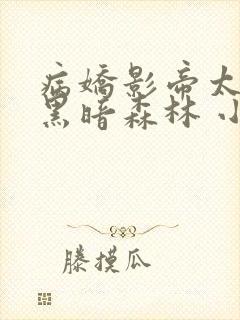 病嬌影帝太
黑暗森林 小
滕摸瓜